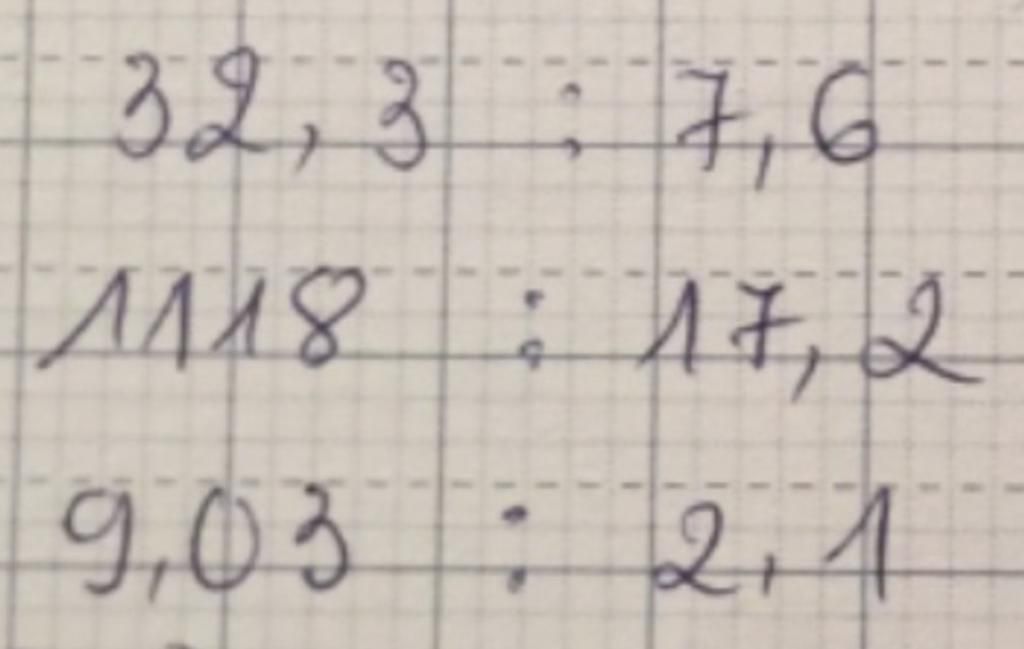 32,3 : 7,6
1118 : 17,2
9,03 : 2,1